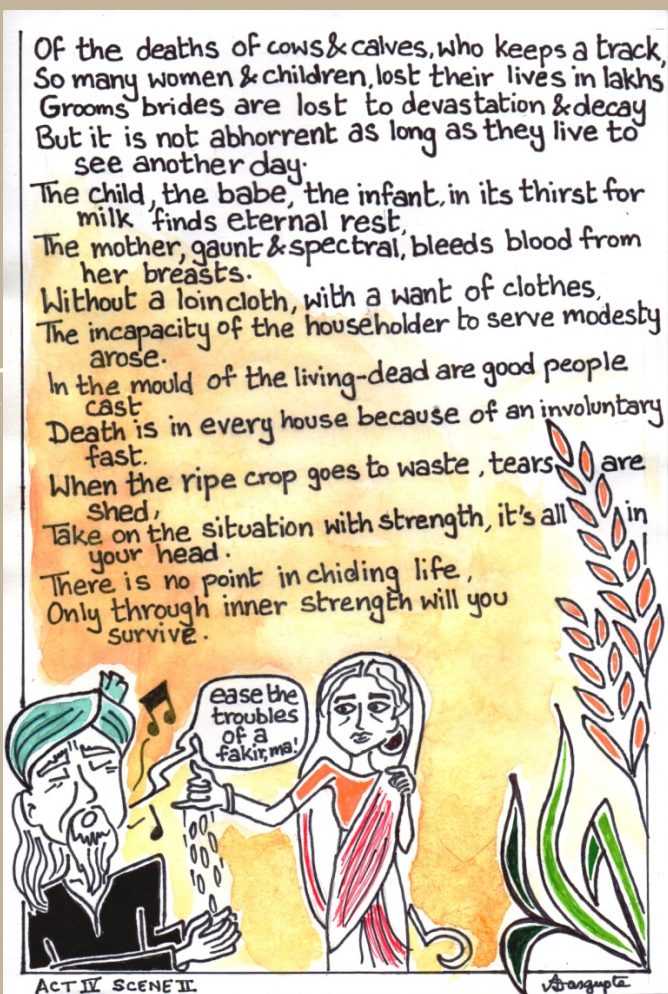 Of the deaths of cows & calves, who keeps a track,
So many women & children, lost their lives in lakhs
Grooms' brides are lost to devastation & decay
But it is not abhorrent as long as they live to
see another day.
The child, the babe, the infant, in its thirst for
milk finds eternal rest,
The mother, gaunt & spectral, bleeds blood from
her breasts.
Without a loincloth, with a want of clothes,
The incapacity of the householder to serve modesty
arose.
In the mould of the living-dead are good people
cast
Death is in every house because of an involuntary
fast.
When the ripe crop goes to waste, tears are
shed,
Take on the situation with strength, it's all in
your head.
There is no point in chiding life,
Only through inner strength will you
survive.
ease the
troubles
of a
fakir, ma!
ACT IV SCENE II
Dasgupta